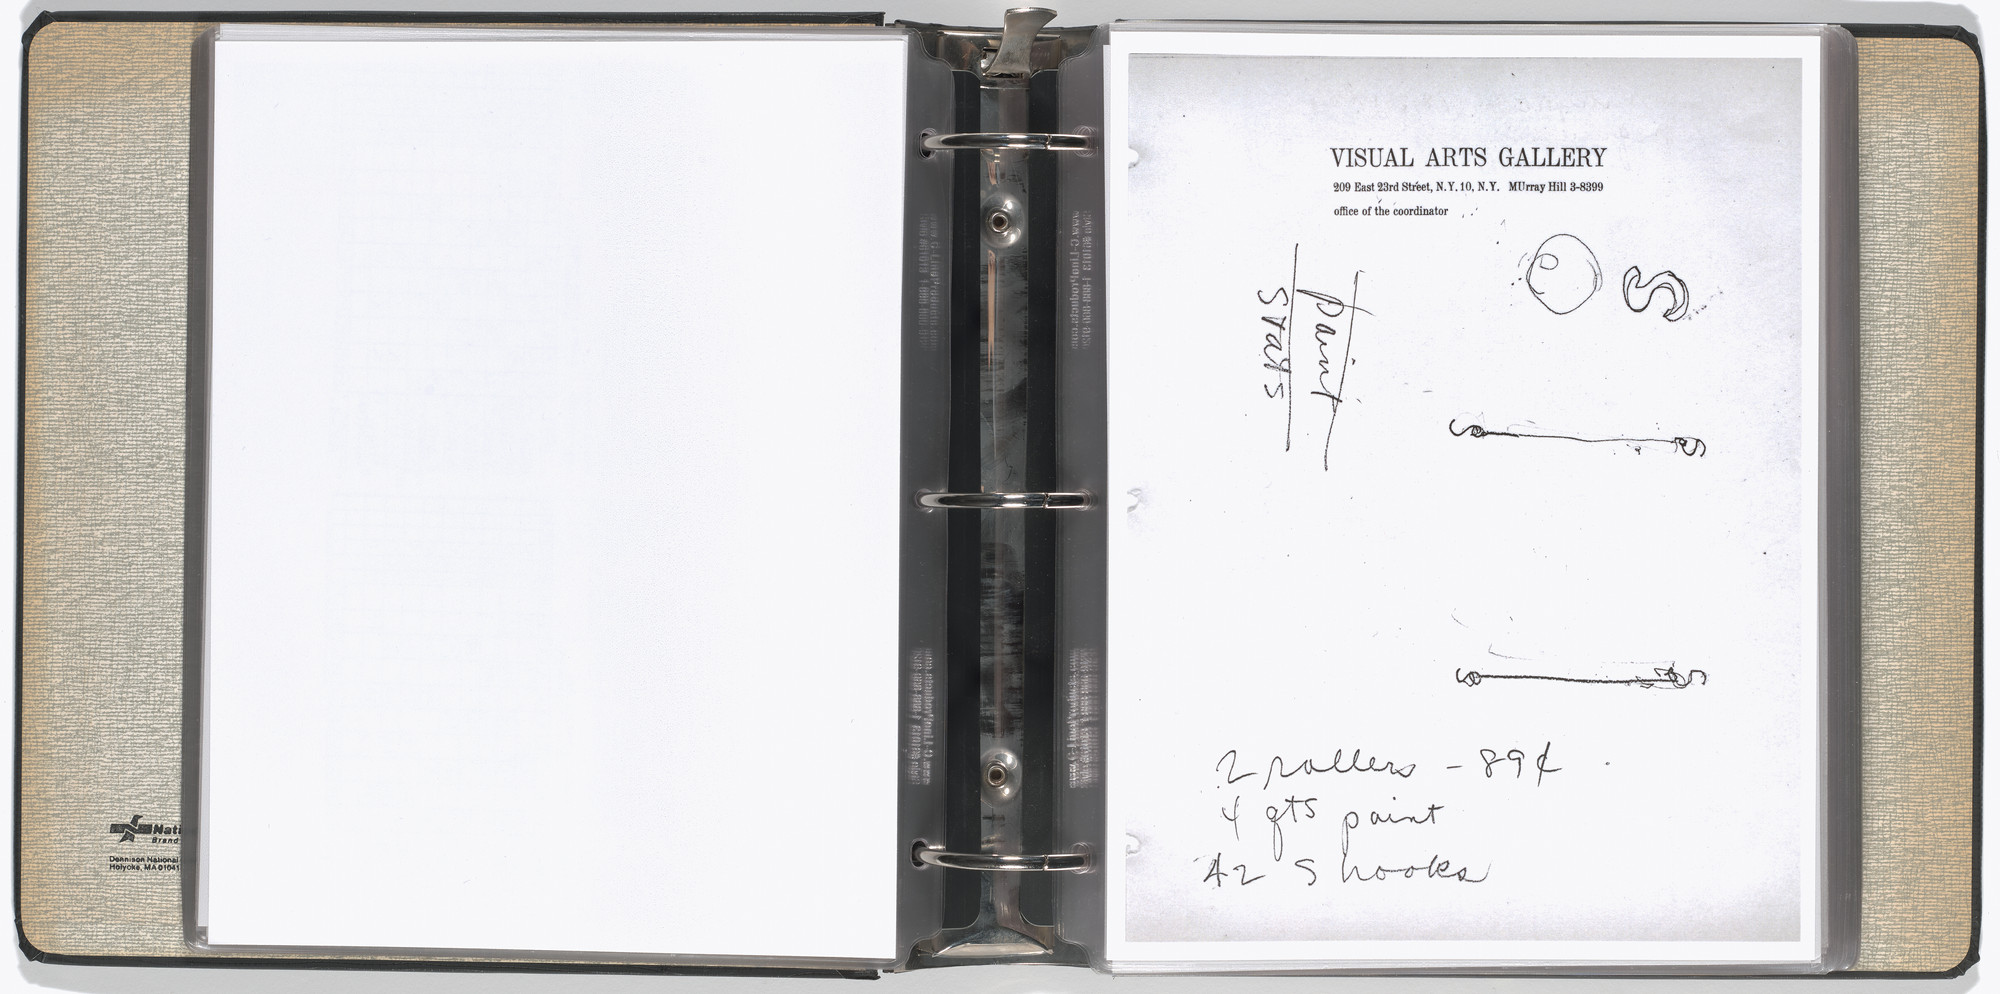 VISUAL ARTS GALLERY
209 East 23rd Street, N.Y. 10, N.Y. MUrray Hill 3-8399
office of the coordinator
paint
stays
2 rollers - 89¢
4 qts paint
42 S hooks
Nati
Brand
Dennison National
Holyoke, MA 01041